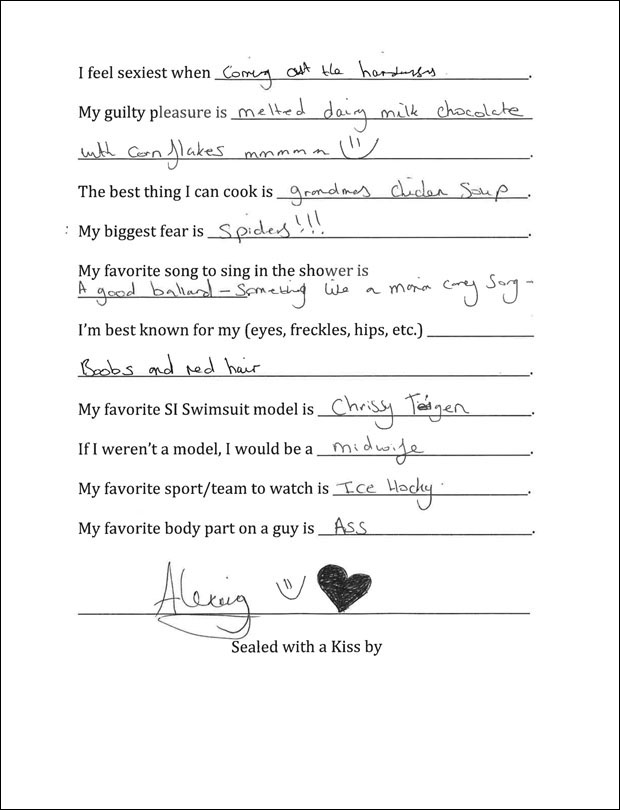 I feel sexiest when Coming out the hairdressers.
My guilty pleasure is melted dairy milk chocolate
with corn flakes mmmmm.
The best thing I can cook is grandmas chicken soup.
: My biggest fear is Spiders!!!.
My favorite song to sing in the shower is
A good ballard - Something like a maria carey song -
I'm best known for my (eyes, freckles, hips, etc.)
Boobs and red hair.
My favorite SI Swimsuit model is Chrissy Teigen.
If I weren't a model, I would be a midwife.
My favorite sport/team to watch is Ice Hocky.
My favorite body part on a guy is Ass.
Sealed with a Kiss by